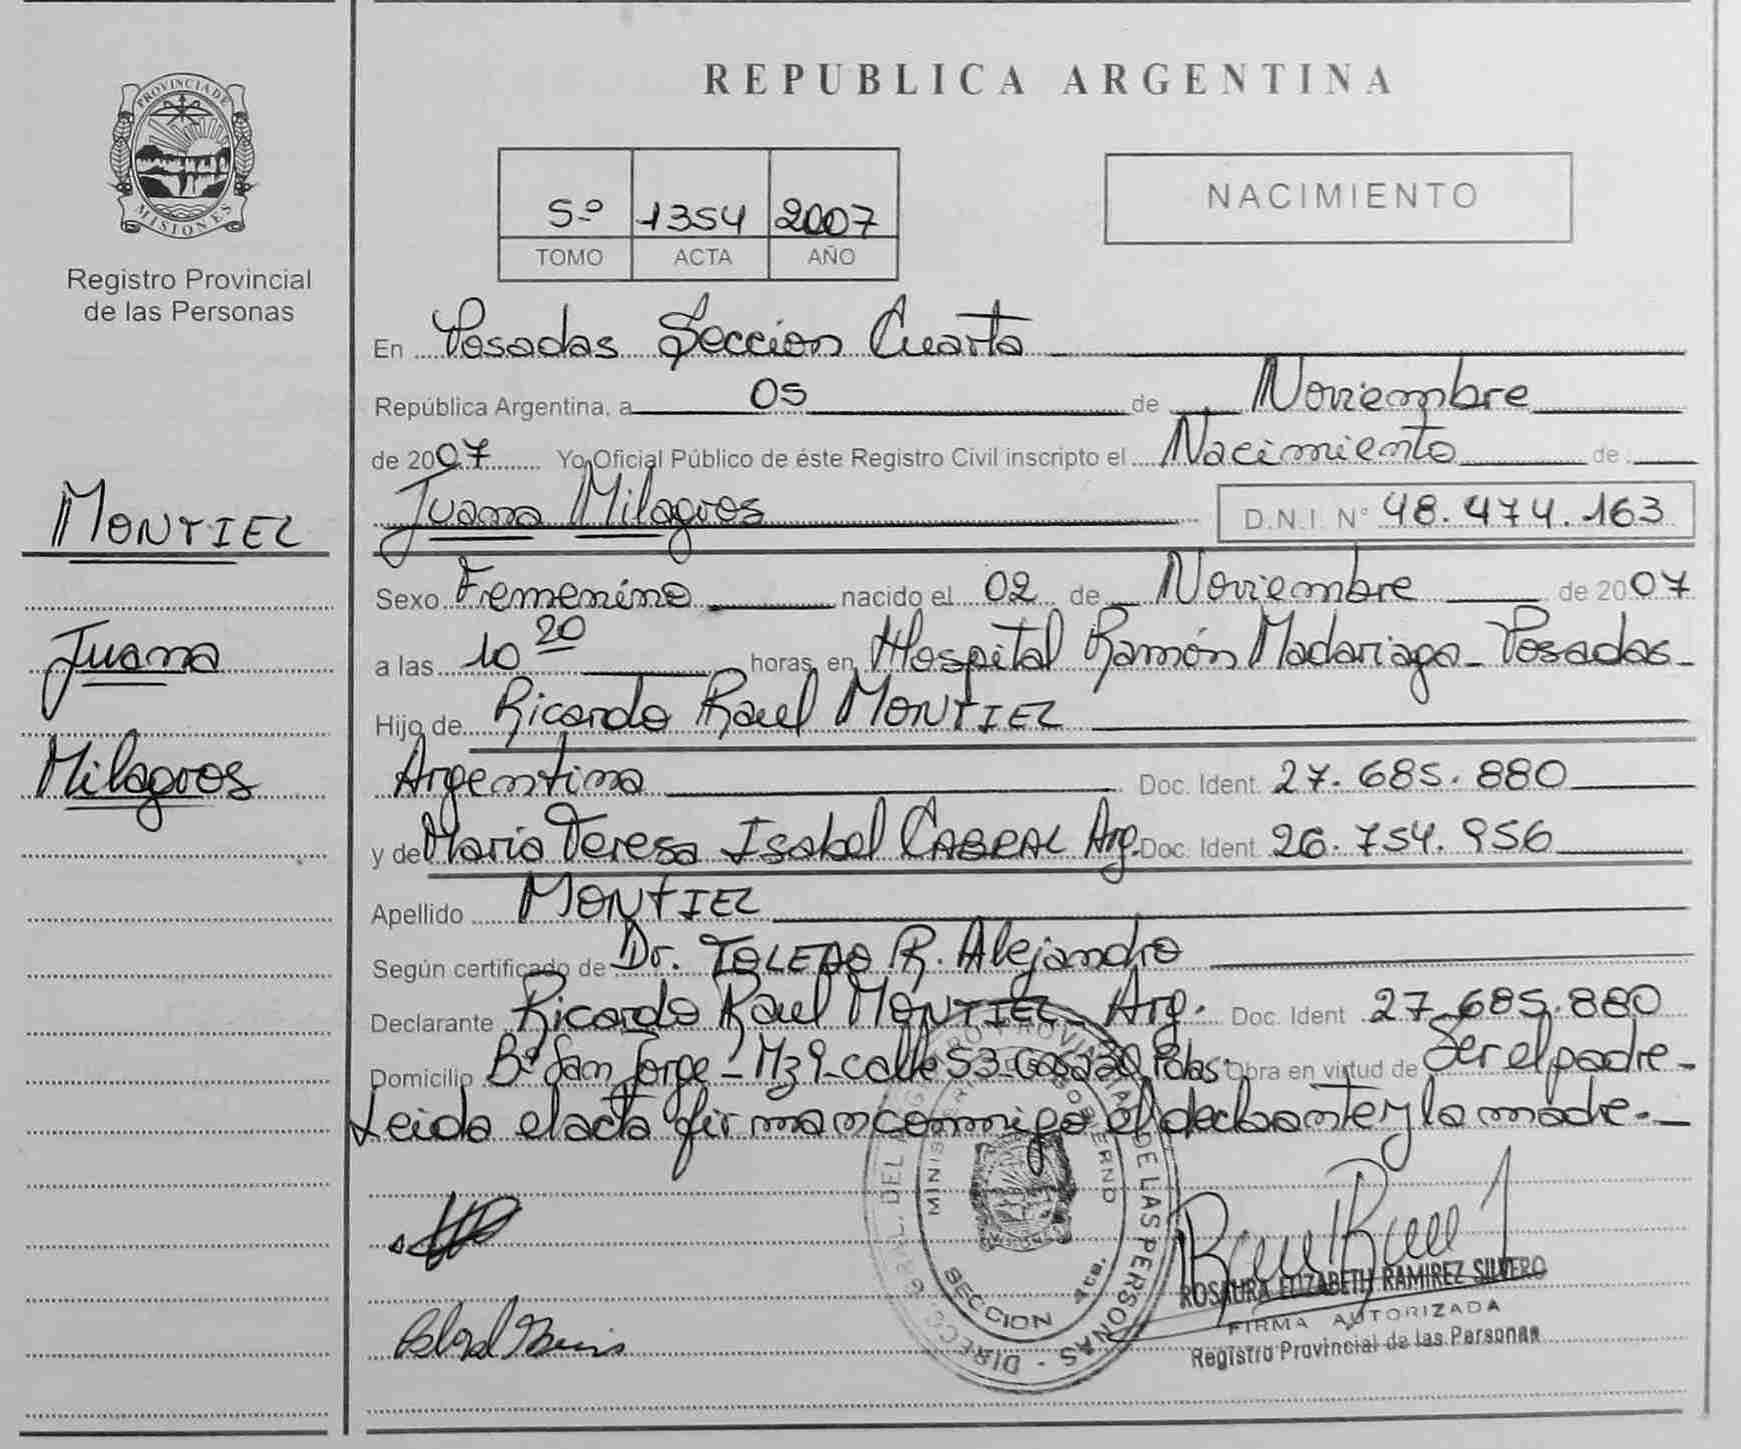 PROVINCIA DE
MISIONES
Registro Provincial
de las Personas
MONTIEL
Juana
Milagros
REPUBLICA ARGENTINA
5º 1354 2007
TOMO ACTA AÑO
NACIMIENTO
En Posadas Seccion Cuarta
República Argentina, a 05 de Noviembre
de 2007 Yo, Oficial Público de éste Registro Civil inscripto el Nacimiento de
Juana Milagros D.N.I. Nº 48.474.163
Sexo Femenino nacido el 02 de Noviembre de 2007
a las 10 20 horas, en Hospital Ramón Madariaga - Posadas -
Hijo de Ricardo Raul MONTIEL
Argentina Doc. Ident. 27.685.880
y de Maria Teresa Isabel CABRAL Arg. Doc. Ident. 26.754.956
Apellido MONTIEL
Según certificado de Dr. TOLEDO R. Alejandro
Declarante Ricardo Raul MONTIEL Arg. Doc. Ident 27.685.880
Domicilio Bº San Jorge - Mz 9 - calle 53 - Pdas. Obra en virtud de Ser el padre -
Leida el acta firman conmigo el declarante y la madre. -
SECCION 4ta.
DE LAS PERSONAS
ROSAURA ELIZABETH RAMIREZ SILVERO
FIRMA AUTORIZADA
Registro Provincial de las Personas